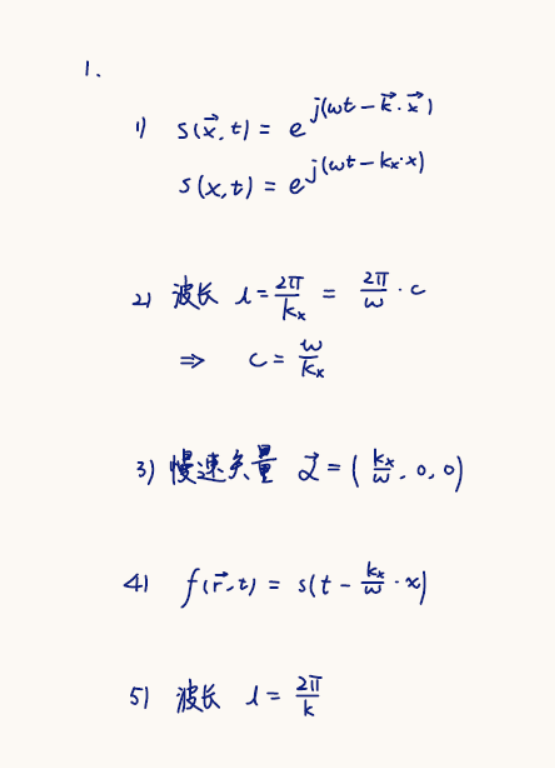 1.
1) s(x⃗, t) = e^{j(ωt − k⃗·x⃗)}
s(x, t) = e^{j(ωt − kₓ·x)}
2) 波长 λ = 2π/kₓ = 2π/ω · c
⇒ c = ω/kₓ
3) 慢速矢量 α⃗ = (kₓ/ω, 0, 0)
4) f(r⃗, t) = s(t − kₓ/ω · x)
5) 波长 λ = 2π/k